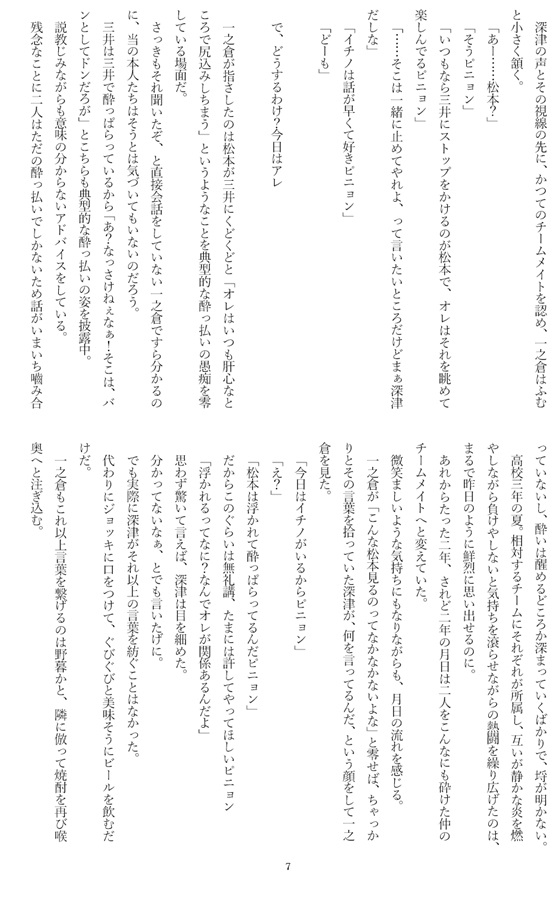 深津の声とその視線の先に、かつてのチームメイトを認め、一之倉はふむ
と小さく頷く。
「あー……松本？」
「そうピニョン」
「いつもなら三井にストップをかけるのが松本で、オレはそれを眺めて
楽しんでるピニョン」
「……そこは一緒に止めてやれよ、って言いたいところだけどまぁ深津
だしな」
「イチノは話が早くて好きピニョン」
「どーも」
で、どうするわけ？今日はアレ
一之倉が指さしたのは松本が三井にくどくどと「オレはいつも肝心なと
ころで尻込みしちまう」というようなことを典型的な酔っ払いの愚痴を零
している場面だ。
さっきもそれ聞いたぞ、と直接会話をしていない一之倉ですら分かるの
に、当の本人たちはそうとは気づいてもいないのだろう。
三井は三井で酔っぱらっているから「あ？なっさけねぇなぁ！そこは、バ
ンとしてドンだろが」とこちらも典型的な酔っ払いの姿を披露中。
説教じみながらも意味の分からないアドバイスをしている。
残念なことに二人はただの酔っ払いでしかないため話がいまいち嚙み合
っていないし、酔いは醒めるどころか深まっていくばかりで、埒が明かない。
高校三年の夏。相対するチームにそれぞれが所属し、互いが静かな炎を燃
やしながら負けやしないと気持ちを滾らせながらの熱闘を繰り広げたのは、
まるで昨日のように鮮烈に思い出せるのに。
あれからたった二年、されど二年の月日は二人をこんなにも砕けた仲の
チームメイトへと変えていた。
微笑ましいような気持ちにもなりながらも、月日の流れを感じる。
一之倉が「こんな松本見るのってなかなかないよな」と零せば、ちゃっか
りとその言葉を拾っていた深津が、何を言ってるんだ、という顔をして一之
倉を見た。
「今日はイチノがいるからピニョン」
「え？」
「松本は浮かれて酔っぱらってるんだピニョン」
だからこのぐらいは無礼講、たまには許してやってほしいピニョン
「浮かれるってなに？なんでオレが関係あるんだよ」
思わず驚いて言えば、深津は目を細めた。
分かってないなぁ、とでも言いたげに。
でも実際に深津がそれ以上の言葉を紡ぐことはなかった。
代わりにジョッキに口をつけて、ぐびぐびと美味そうにビールを飲むだ
けだ。
一之倉もこれ以上言葉を繋げるのは野暮かと、隣に倣って焼酎を再び喉
奥へと注ぎ込む。
7